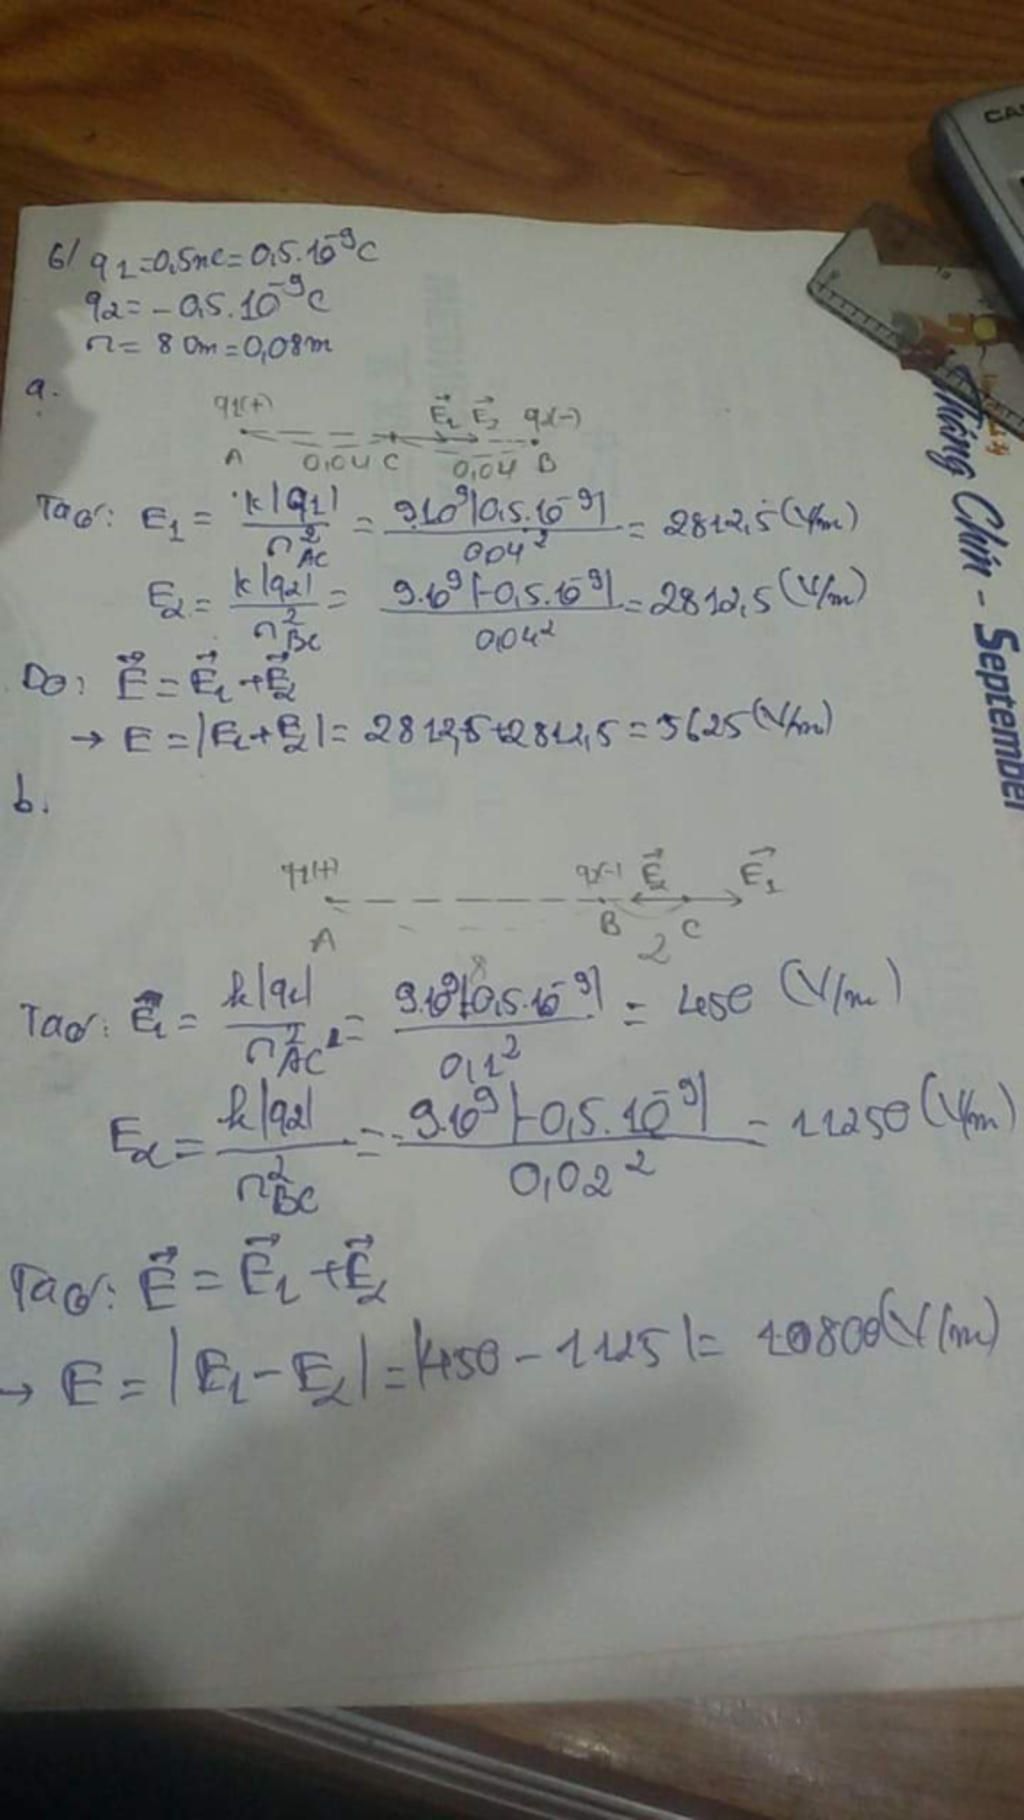 6/ q1=0,5nC=0,5.10^-9C
q2=-0,5.10^-9C
r= 8cm=0,08m
a.
q1(+) E1 E2 q2(-)
A 0,04 C 0,04 B
Ta có: E1 = k|q1| / r²AC = 9.10^9|0,5.10^-9| / 0,04² = 2812,5 (V/m)
E2 = k|q2| / r²BC = 9.10^9|-0,5.10^-9| / 0,04² = 2812,5 (V/m)
Do: E = E1 + E2
→ E = |E1+E2| = 2812,5+2812,5 = 5625 (V/m)
b.
q1(+) q2(-) E2 E1
A B 2 C
8
Ta có: E1 = k|q1| / r²AC = 9.10^9|0,5.10^-9| / 0,1² = 450 (V/m)
E2 = k|q2| / r²BC = 9.10^9|-0,5.10^-9| / 0,02² = 11250 (V/m)
Ta có: E = E1 + E2
→ E = |E1-E2| = |450-1125| = 10800 (V/m)
Tháng Chín - September
CAS